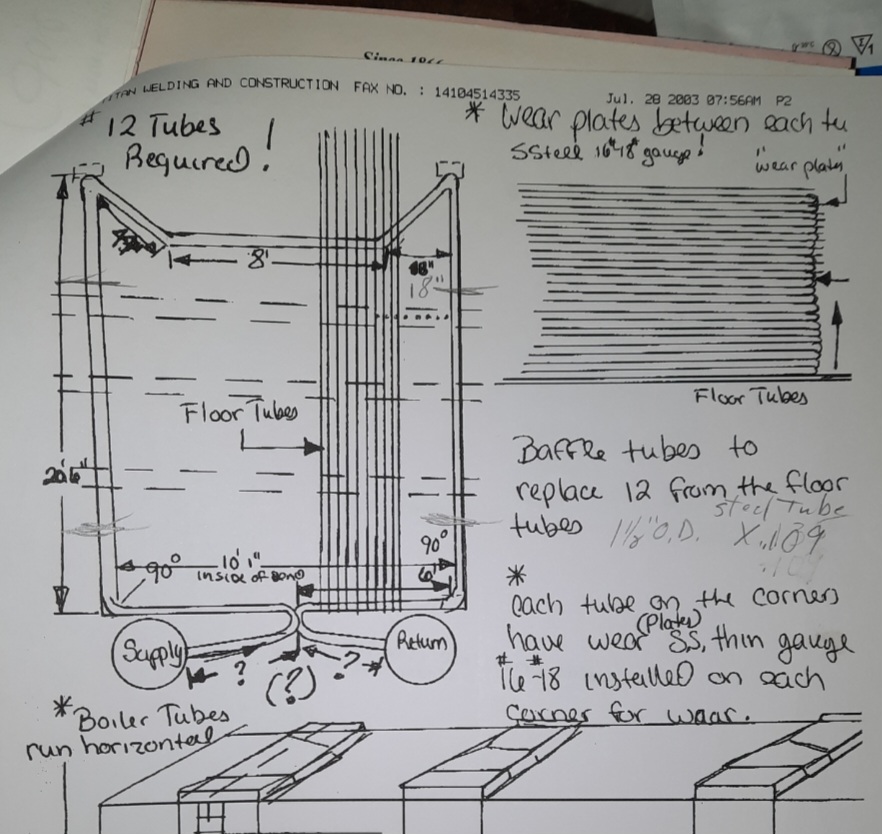 WELDING AND CONSTRUCTION FAX NO. : 14104514335
Jul. 28 2003 07:56AM P2
# 12 Tubes
Required!
* Wear plates between each tu
SSteel 16"-18" gauge!
"wear plates"
8'
18"
18"
Floor Tubes
Floor Tubes
20'6"
Baffle tubes to
replace 12 from the floor
tubes
steel Tube
1½" O.D. X .109
.109
90°
90°
10' 1"
inside of bend
6'
*
each tube on the corners
have wear (plates) SS, thin gauge
#16-#18 installed on each
corner for waar.
Supply
Return
?
(?)
?
* Boiler Tubes
run horizontal